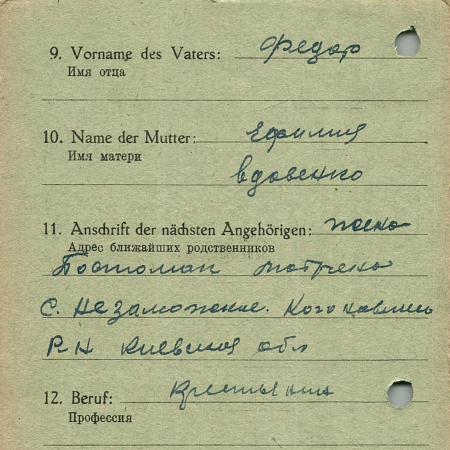 9. Vorname des Vaters: Федор
Имя отца
10. Name der Mutter: Ефимия
Имя матери
вдовенко
11. Anschrift der nächsten Angehörigen: жена
Адрес ближайших родственников
С. Незаможное.
Р-Н Киевская обл
12. Beruf: Крестьянин
Профессия